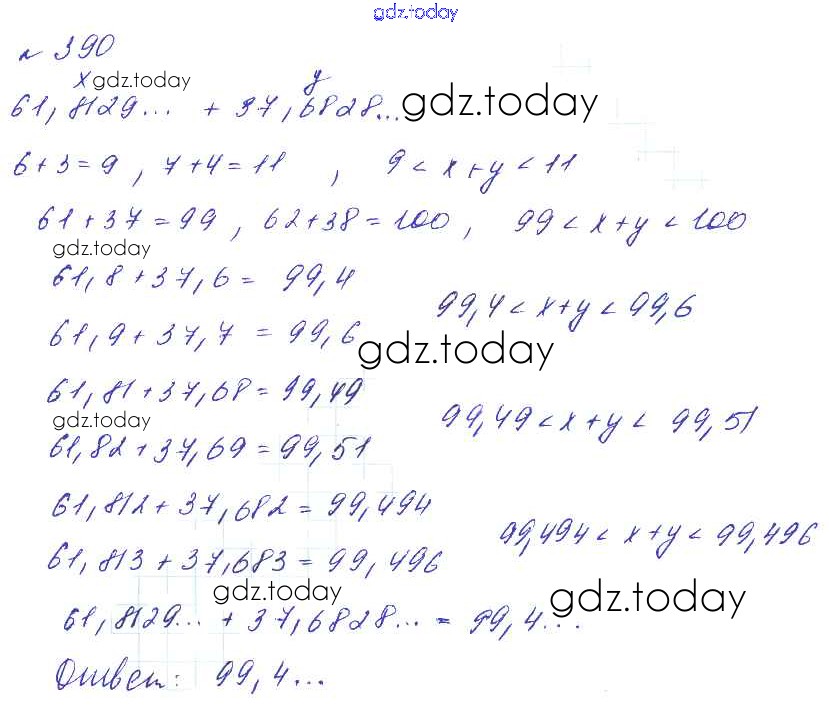 gdz.today
№ 390
x gdz.today y
61,8129... + 37,6828... gdz.today
6+3=9, 7+4=11, 9 < x+y < 11
61+37=99, 62+38=100, 99 < x+y < 100
gdz.today
61,8+37,6= 99,4
99,4 < x+y < 99,6
61,9+37,7 = 99,6
gdz.today
61,81+37,68=99,49
gdz.today
99,49 < x+y < 99,51
61,82+37,69=99,51
61,812+37,682=99,494
99,494 < x+y < 99,496
61,813+37,683=99,496
gdz.today gdz.today
61,8129... + 37,6828... = 99,4...
Ответ: 99,4...